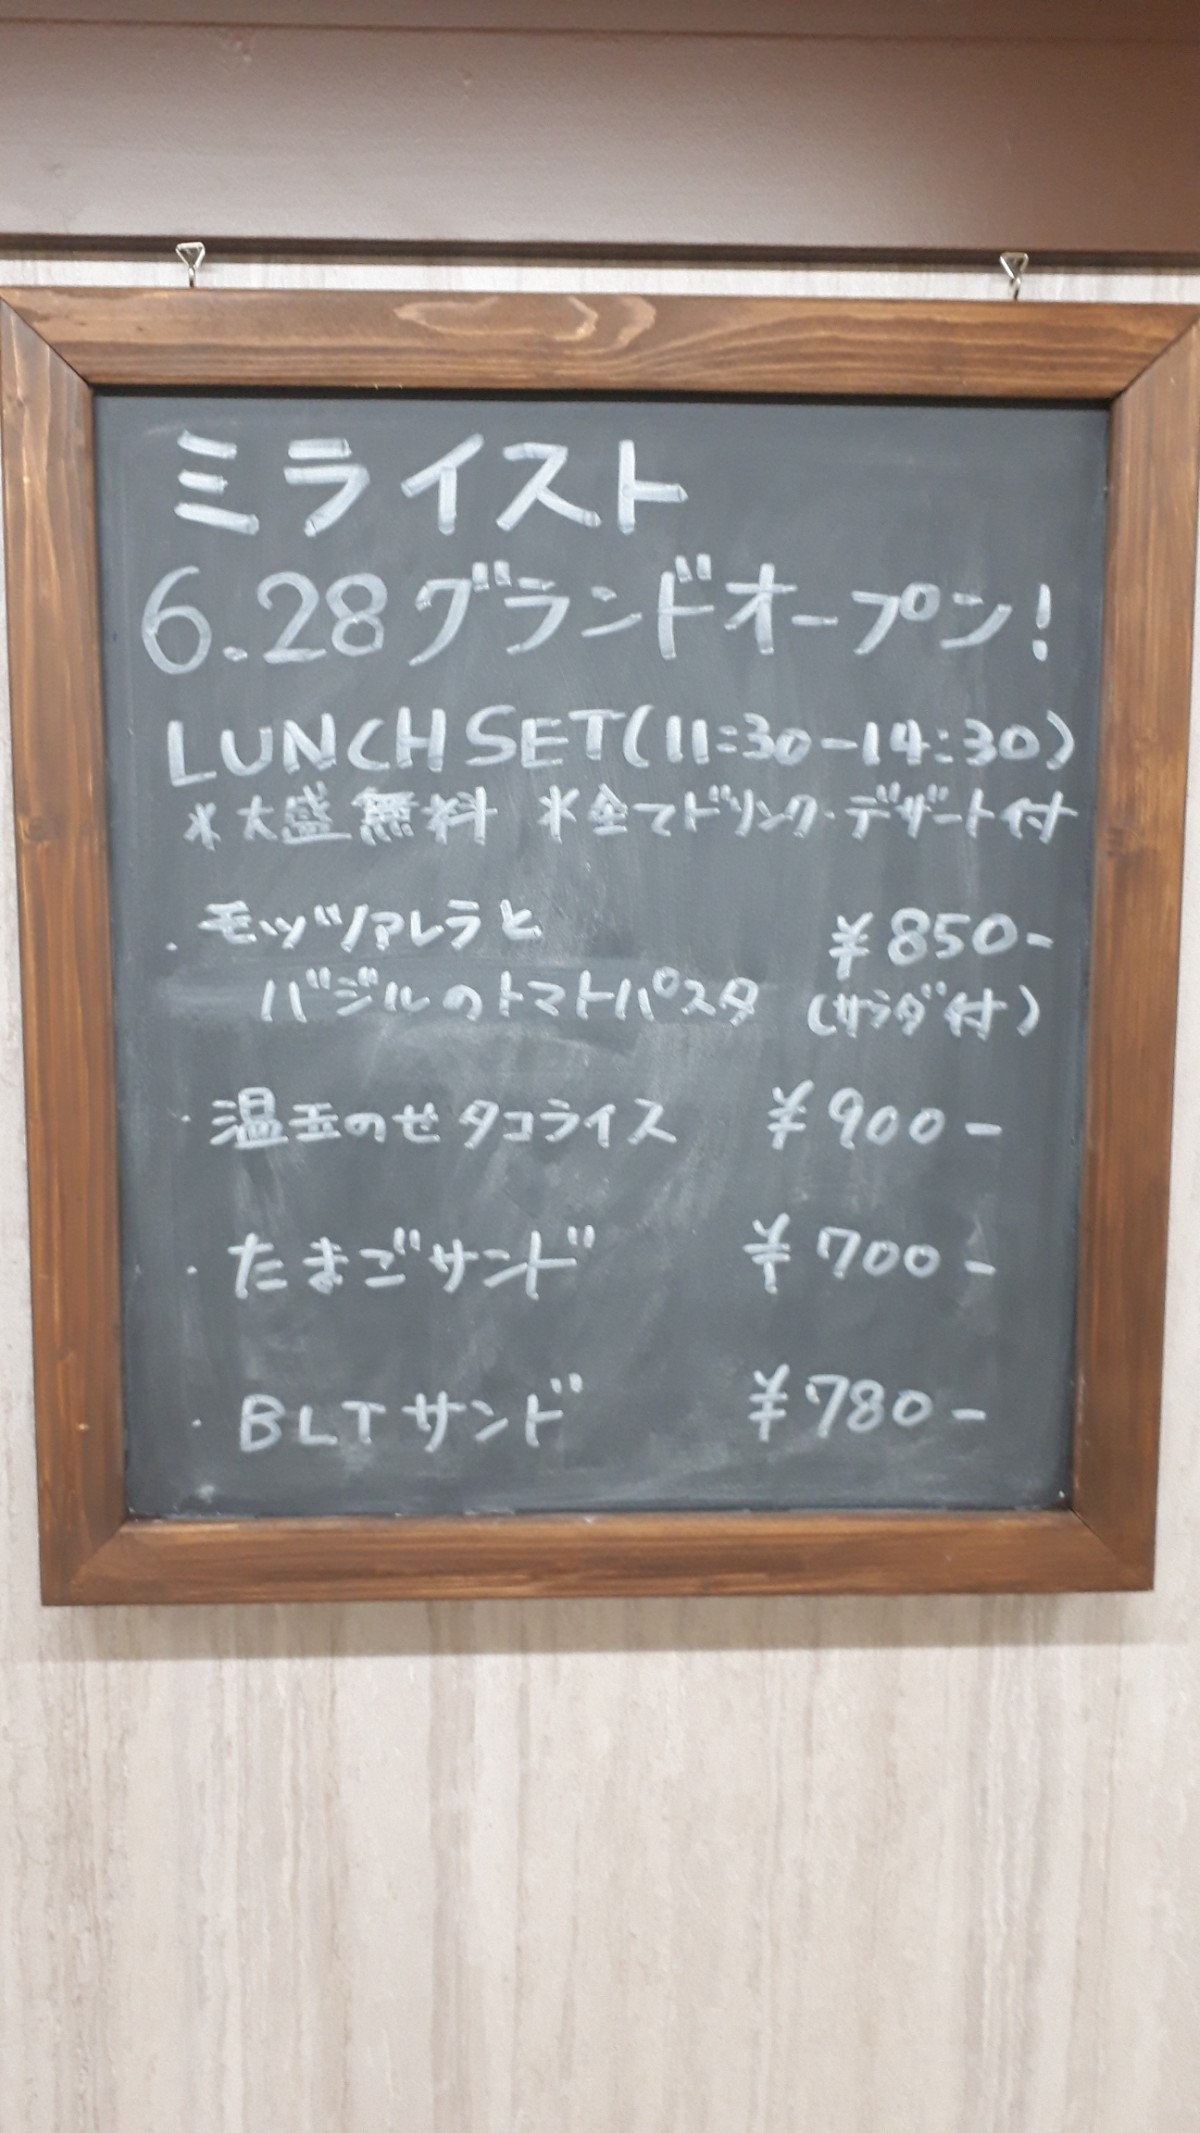 ミライスト
6.28グランドオープン!
LUNCH SET(11:30-14:30)
*大盛無料 *全てドリンク・デザート付
・モッヅァレラと ¥850-
バジルのトマトパスタ (サラダ付)
・温玉のせタコライス ¥900-
・たまごサンド ¥700-
・BLTサンド ¥780-